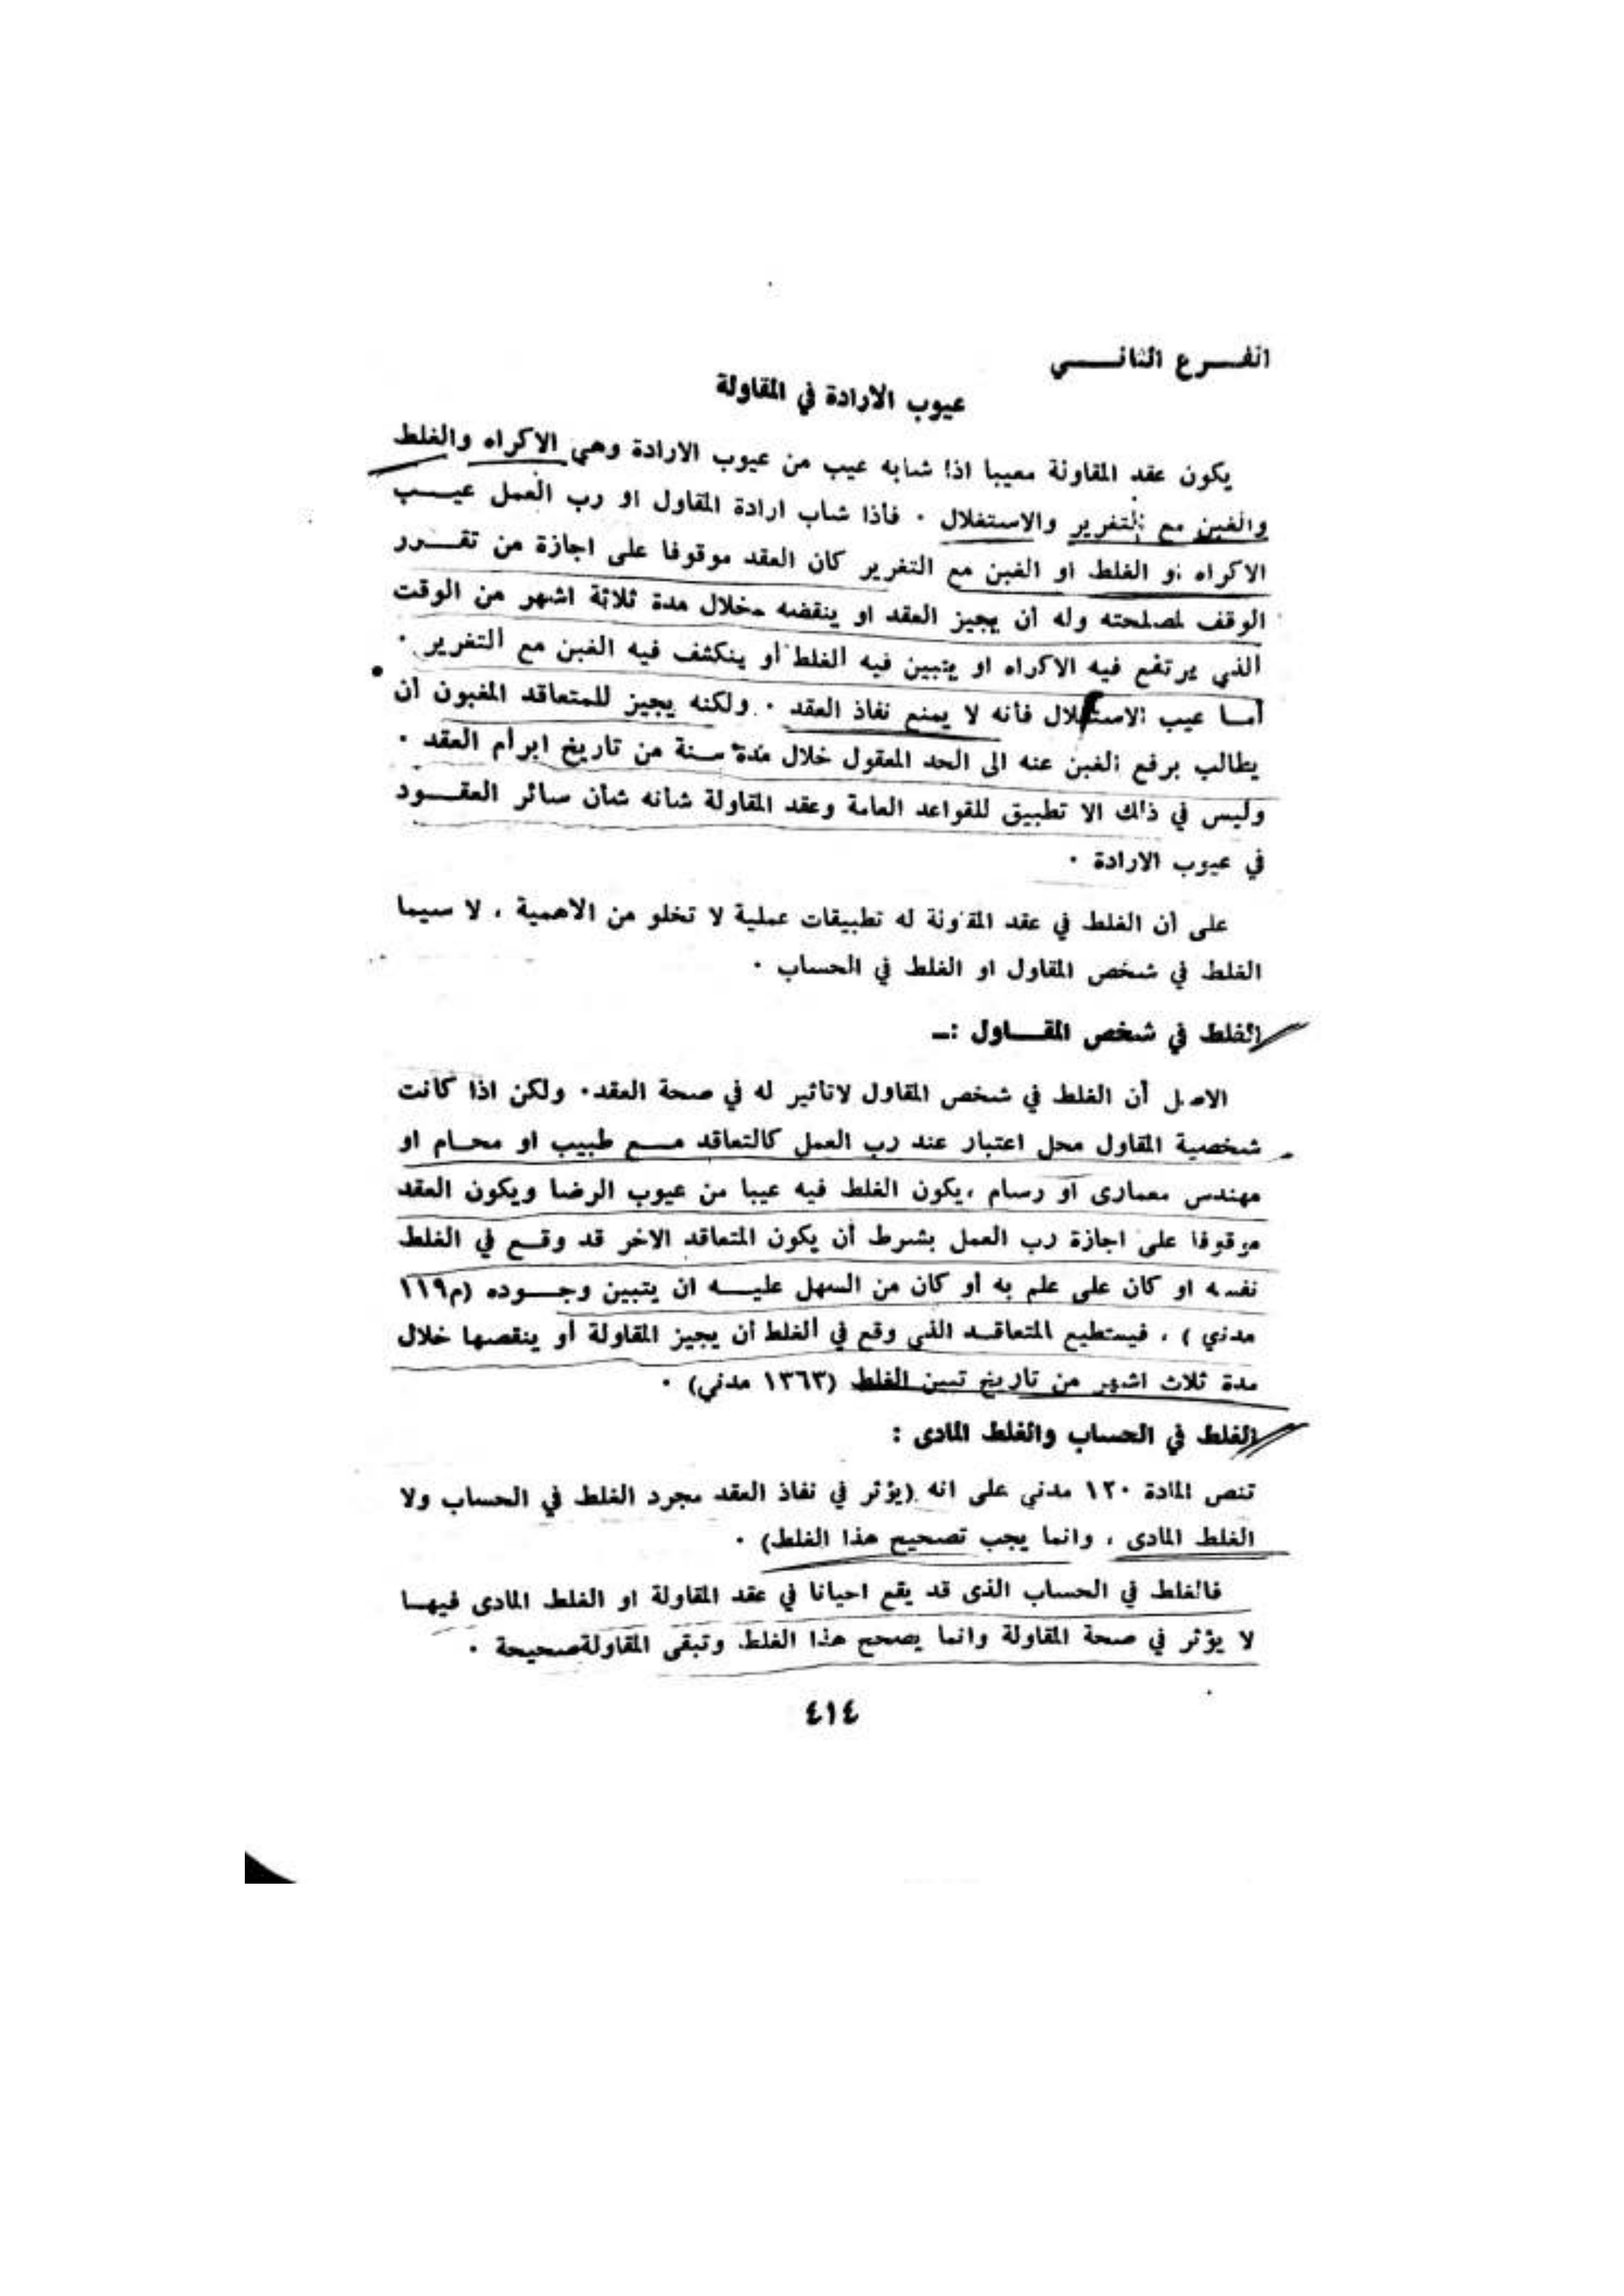 الفـــرع الثانــــي
عيوب الارادة في المقاولة
يكون عقد المقاولة معيبا اذا شابه عيب من عيوب الارادة وهي الاكراه والغلط
والغبن مع التغرير والاستغلال . فأذا شاب ارادة المقاول او رب العمل عيـــب
الاكراه او الغلط او الغبن مع التغرير كان العقد موقوفا على اجازة من تقـــرر
الوقف لمصلحته وله أن يجيز العقد او ينقضه خلال مدة ثلاثة اشهر من الوقت
الذي يرتفع فيه الاكراه او يتبين فيه الغلط أو ينكشف فيه الغبن مع التغرير .
أمـا عيب الاستغلال فأنه لا يمنع نفاذ العقد . ولكنه يجيز للمتعاقد المغبون أن
يطالب برفع الغبن عنه الى الحد المعقول خلال مدة سـنة من تاريخ ابرام العقد .
وليس في ذلك الا تطبيق للقواعد العامة وعقد المقاولة شأنه شأن سائر العقـــود
في عيوب الارادة .
على أن الغلط في عقد المقاولة له تطبيقات عملية لا تخلو من الاهمية ، لا سيما
الغلط في شخص المقاول او الغلط في الحساب .
الغلط في شخص المقـــاول :ـ
الاصل أن الغلط في شخص المقاول لاتأثير له في صحة العقد. ولكن اذا كانت
شخصية المقاول محل اعتبار عند رب العمل كالتعاقد مـــع طبيب او محـام او
مهندس معمارى أو رسام ،يكون الغلط فيه عيبا من عيوب الرضا ويكون العقد
موقوفا على اجازة رب العمل بشرط أن يكون المتعاقد الاخر قد وقـــع في الغلط
نفسه او كان على علم به أو كان من السهل عليـــه ان يتبين وجـــوده (م١١٩
مدني ) ، فيستطيع المتعاقـد الذي وقع في الغلط أن يجيز المقاولة أو ينقصها خلال
مدة ثلاث اشهر من تاريخ تبين الغلط (١٣٦٣ مدني) .
الغلط في الحساب والغلط المادى :
تنص المادة ١٢٠ مدني على انه (يؤثر في نفاذ العقد مجرد الغلط في الحساب ولا
الغلط المادى ، وانما يجب تصحيح هذا الغلط) .
فالغلط في الحساب الذى قد يقع احيانا في عقد المقاولة او الغلط المادى فيهـا
لا يؤثر في صحة المقاولة وانما يصحح هذا الغلط وتبقى المقاولةصحيحة .
٤١٤